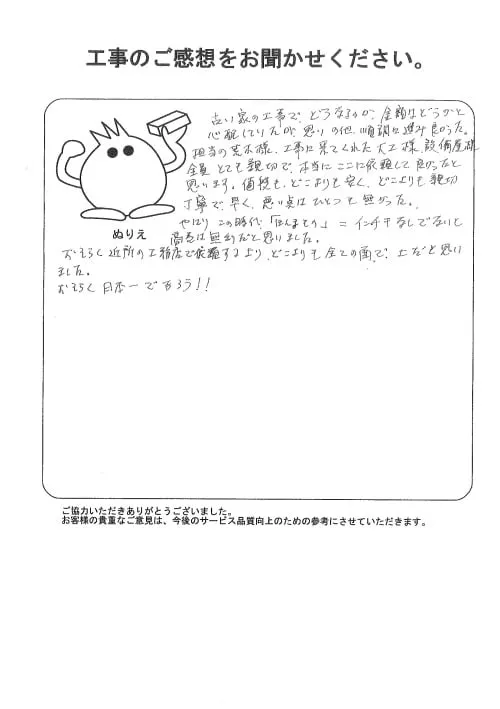 工事のご感想をお聞かせください。
古い家の工事で、どうなるのか、金額はどうかと
心配していたが、思いの他、順調に進み良かった。
担当の荒木様、工事に来てくれた大工様、設備屋様
全員とても親切で、本当にここに依頼して良かったと
思います。価格も、どこよりも安く、どこよりも親切
丁寧で、早く、悪い点はひとつも無かった。
やはりこの時代、「ほんまもの」=インチキなしでないと
商売は無理だと思いました。
ぬりえ
おそらく近所の工務店で依頼するより、どこよりも全ての面で、上だと思い
ました。
おそらく日本一であろう!!
ご協力いただきありがとうございました。
お客様の貴重なご意見は、今後のサービス品質向上のための参考にさせていただきます。